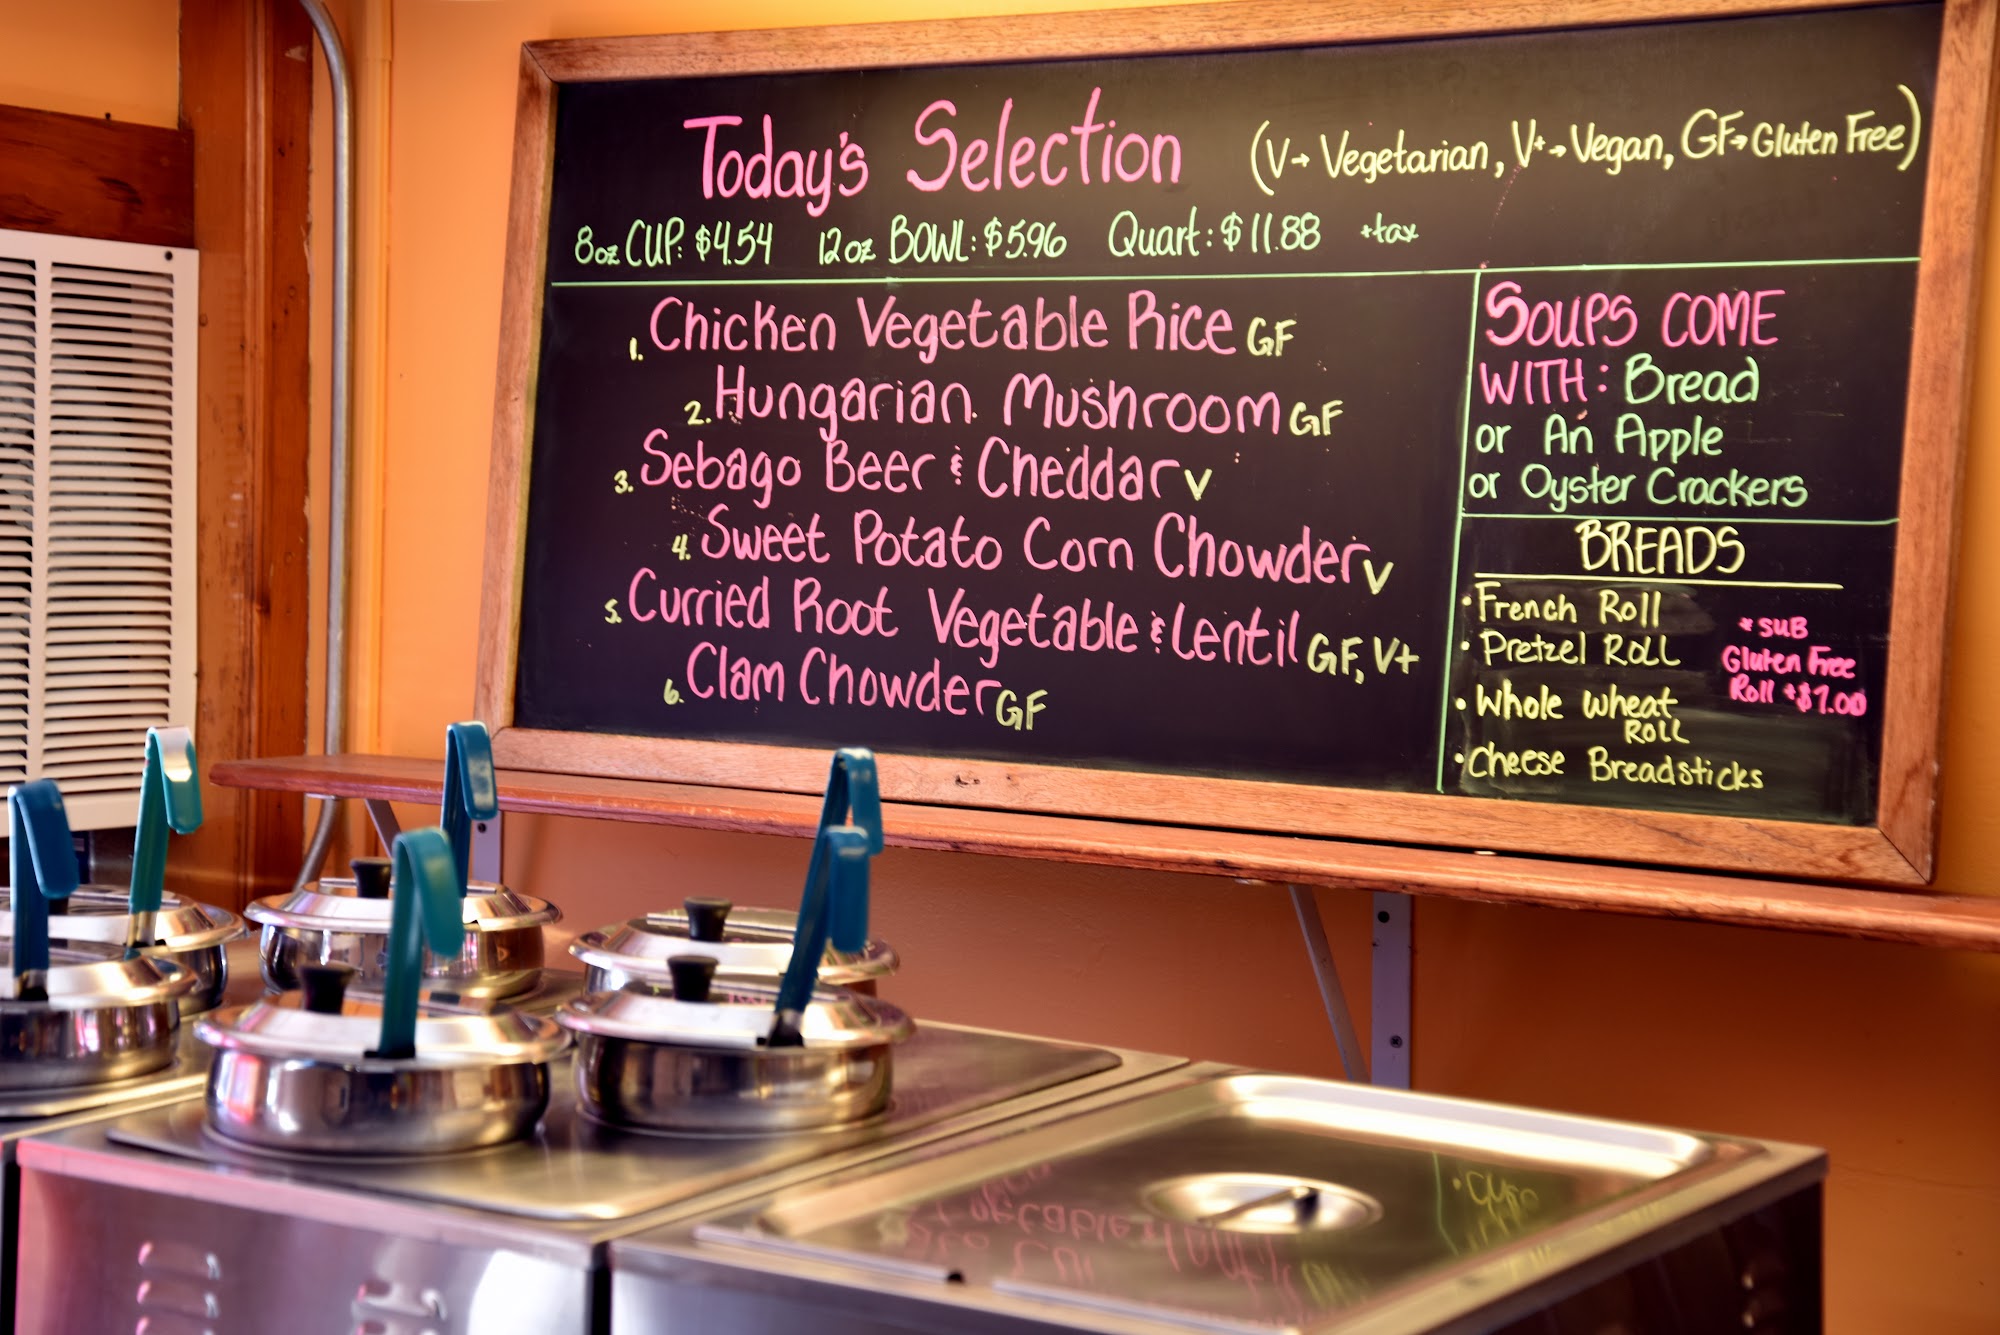 Today's Selection (V→ Vegetarian, V+→Vegan, GF→Gluten Free)
8oz CUP: $4.54 12oz BOWL: $5.96 Quart: $11.88 +tax
1. Chicken Vegetable Rice GF
2. Hungarian Mushroom GF
3. Sebago Beer & Cheddar V
4. Sweet Potato Corn Chowder V
5. Curried Root Vegetable & Lentil GF, V+
6. Clam Chowder GF
SOUPS COME
WITH: Bread
or An Apple
or Oyster Crackers
BREADS
• French Roll
• Pretzel ROLL
• Whole Wheat
ROLL
• Cheese Breadsticks
* SUB
Gluten Free
Roll +$1.00